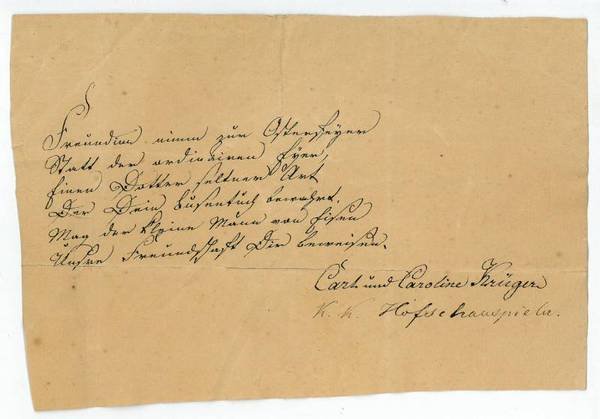 Freundin nimm zur Osterfeyer
Statt der ordinairen Eyer,
Einen Dotter seltner Art
Der Dein Busentuch bewahrt.
Mag der kleine Mann von Eisen
Unsre Freundschaft Dir beweisen.
Carl und Caroline Krüger
K. K. Hofschauspieler.